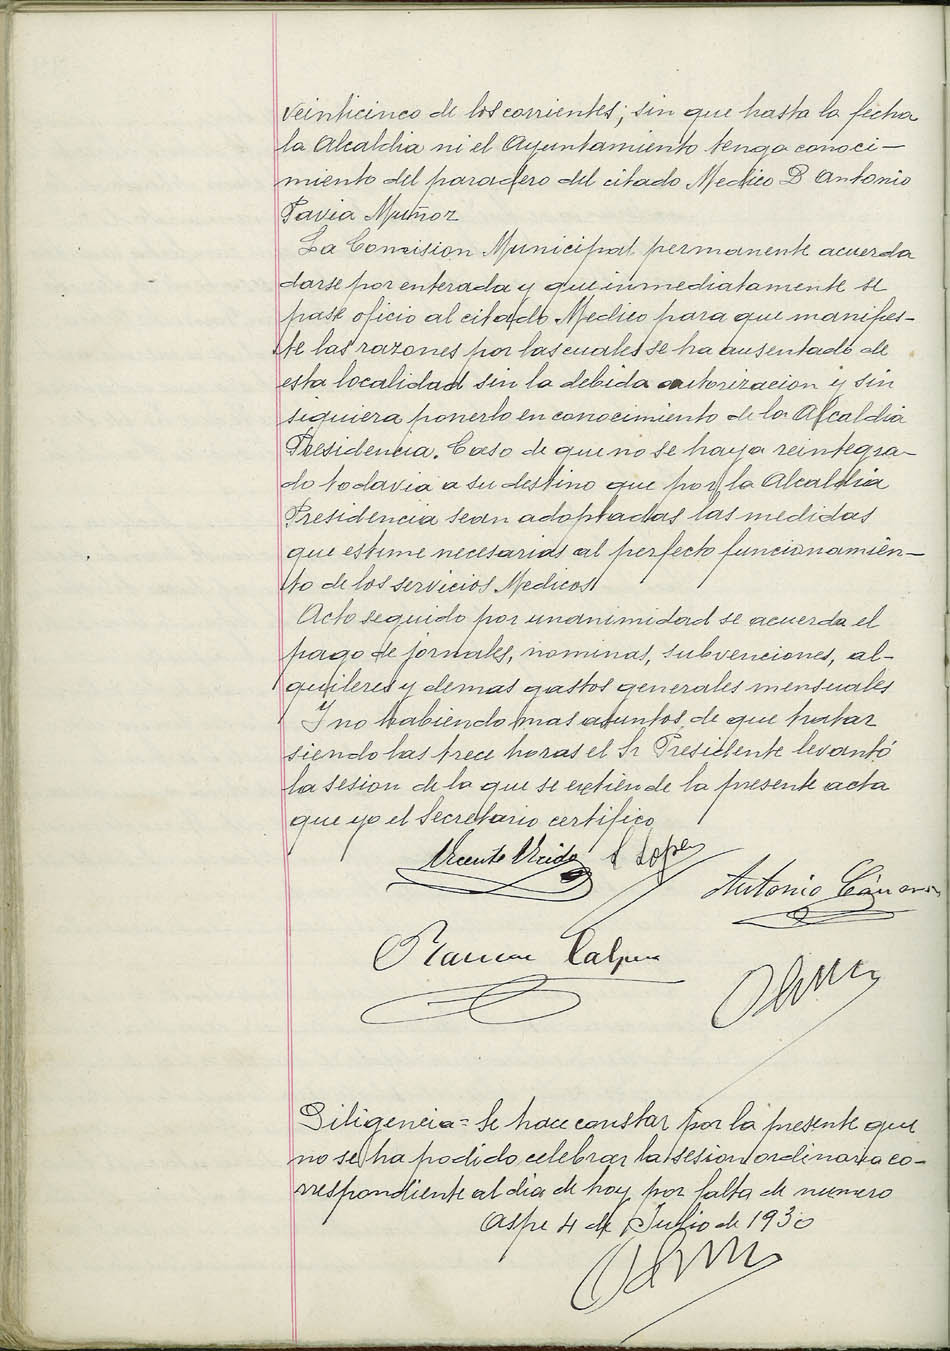 veinticinco de los corrientes; sin que hasta la fecha
la Alcaldia ni el Ayuntamiento tenga conoci-
miento del paradero del citado Medico D Antonio
Pavia Muñoz
La Comision Municipal permanente acuerda
darse por enterada y que inmediatamente se
pase oficio al citado Medico para que manifies-
te las razones por las cuales se ha ausentado de
esta localidad sin la debida autorizacion y sin
siquiera ponerlo en conocimiento de la Alcaldia
Presidencia. Caso de que no se haya reintegra-
do todavia a su destino que por la Alcaldia
Presidencia sean adoptadas las medidas
que estime necesarias al perfecto funcionamien-
to de los servicios Medicos
Acto seguido por unanimidad se acuerda el
pago de jornales, nominas, subvenciones, al-
quileres y demas gastos generales mensuales
Y no habiendo mas asuntos de que tratar
siendo las trece horas el Sr Presidente levantó
la sesion de la que se extiende la presente acta
que yo el Secretario certifico
Vicente Lopez
Antonio Cánovas
Ramon Calpena
Diligencia = Se hace constar por la presente que
no se ha podido celebrar la sesion ordinaria co-
rrespondiente al dia de hoy por falta de numero
Aspe 4 de Julio de 1930